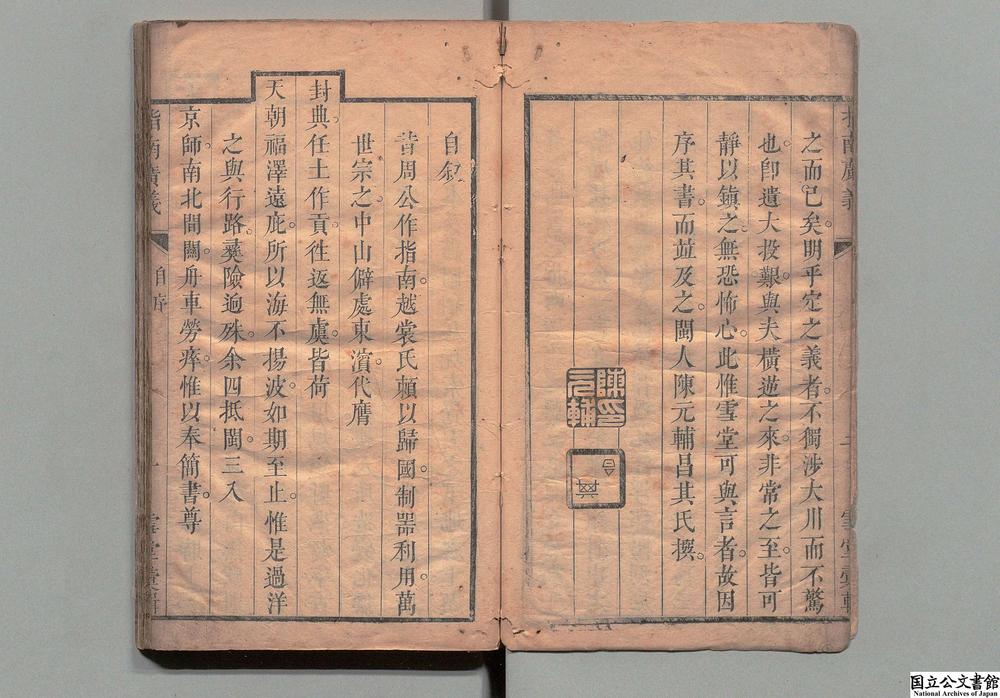 指南廣義
之而已矣明乎定之義者不獨涉大川而不驚
也卽遺大投艱與夫橫逆之來非常之至皆可
靜以鎮之無恐怖心此惟雪堂可與言者故因
序其書而竝及之閩人陳元輔昌其氏撰
陳印元輔
自叙
昔周公作指南越裳氏賴以歸國制器利用萬
世宗之中山僻處東濵代膺
封典任土作貢徃返無虞皆荷
天朝福澤遠庇所以海不揚波如期至止惟是過洋
之與行路彞險逈殊余四抵閩三入
京師南北間關舟車勞瘁惟以奉簡書尊
指南廣義
自序
一
國立公文書館
National Archives of Japan